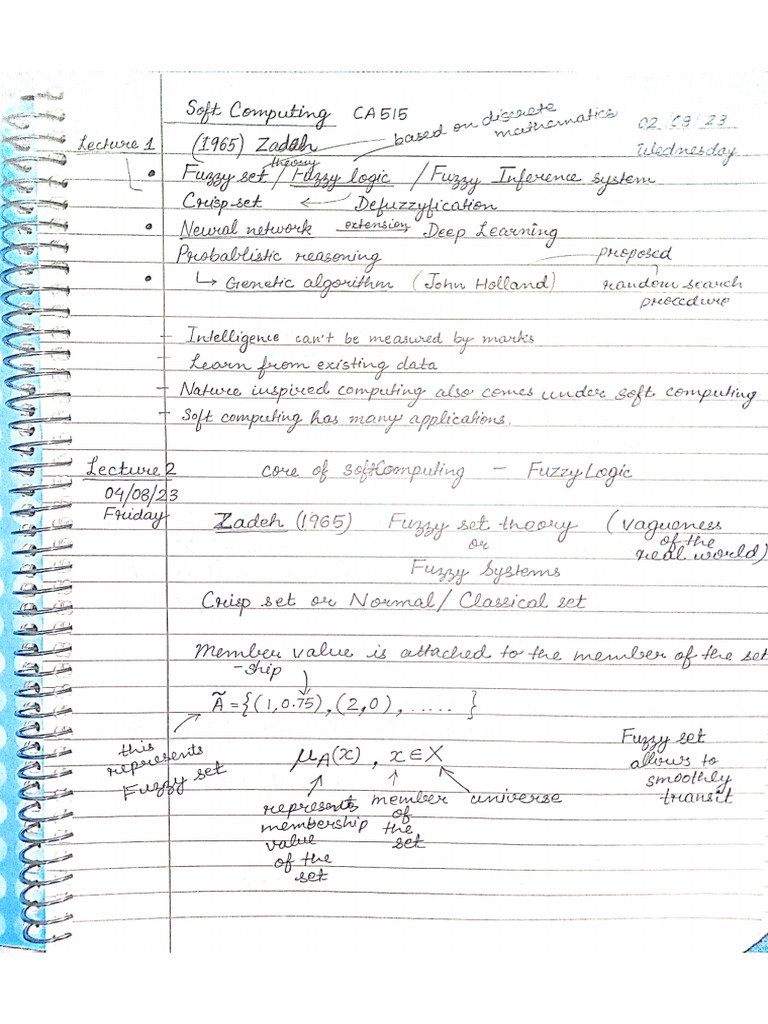 Soft Computing CA515
based on discrete mathematics
02/08/23
Wednesday
Lecture 1
(1965) Zadeh
theory
• Fuzzy set / Fuzzy logic / Fuzzy Inference system
Crisp set ← Defuzzyfication
• Neural network extension Deep Learning
Probablistic reasoning
• ↳ Genetic algorithm (John Holland)
proposed
random search
procedure
- Intelligence can't be measured by marks
- Learn from existing data
- Nature inspired computing also comes under soft computing
- Soft computing has many applications.
Lecture 2
04/08/23
Friday
core of SoftComputing - Fuzzy Logic
Zadeh (1965) Fuzzy set theory (vagueness
or of the
real world)
Fuzzy Systems
Crisp set or Normal/Classical set
Member value is attached to the member of the set
-ship
Ã = {(1, 0.75), (2, 0), ..... }
this
represents
Fuzzy set
μA(x), x ∈ X
represents
membership
value
of the
set
member
of
the
set
universe
Fuzzy set
allows to
smoothly
transit